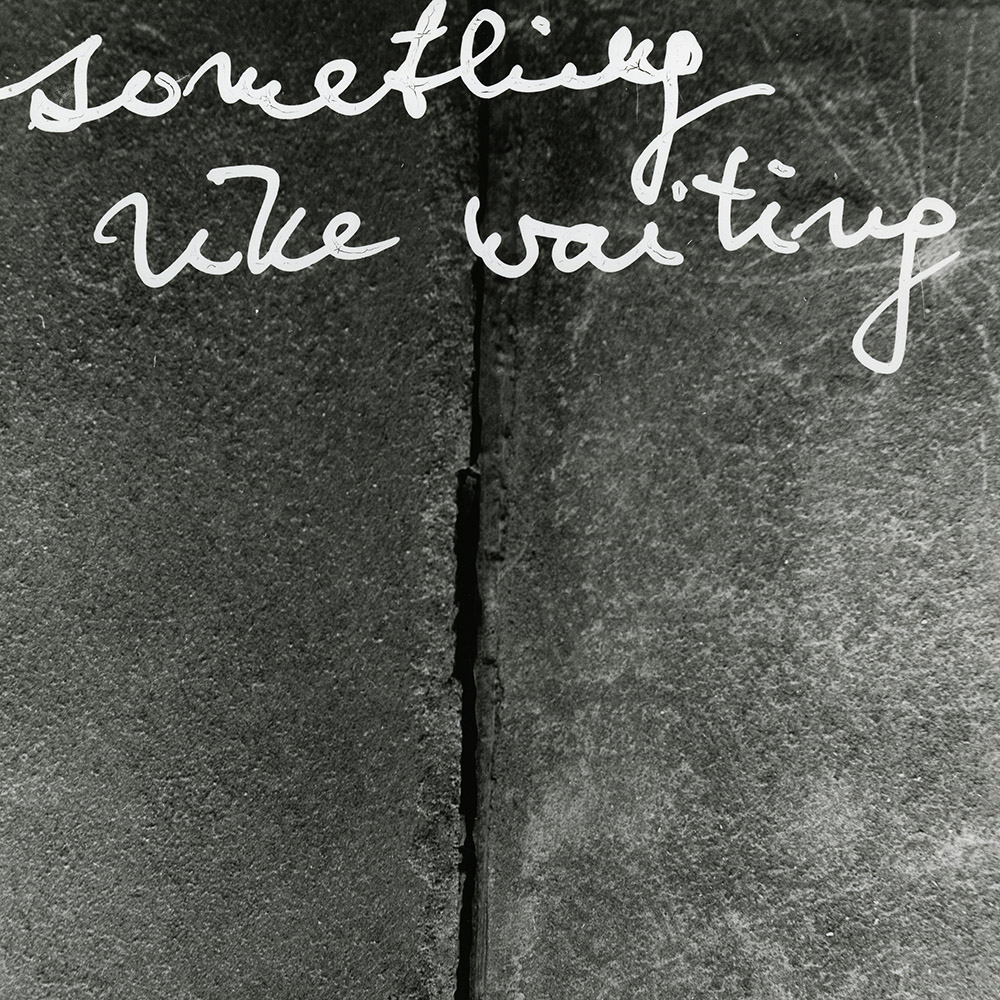 something
like waiting